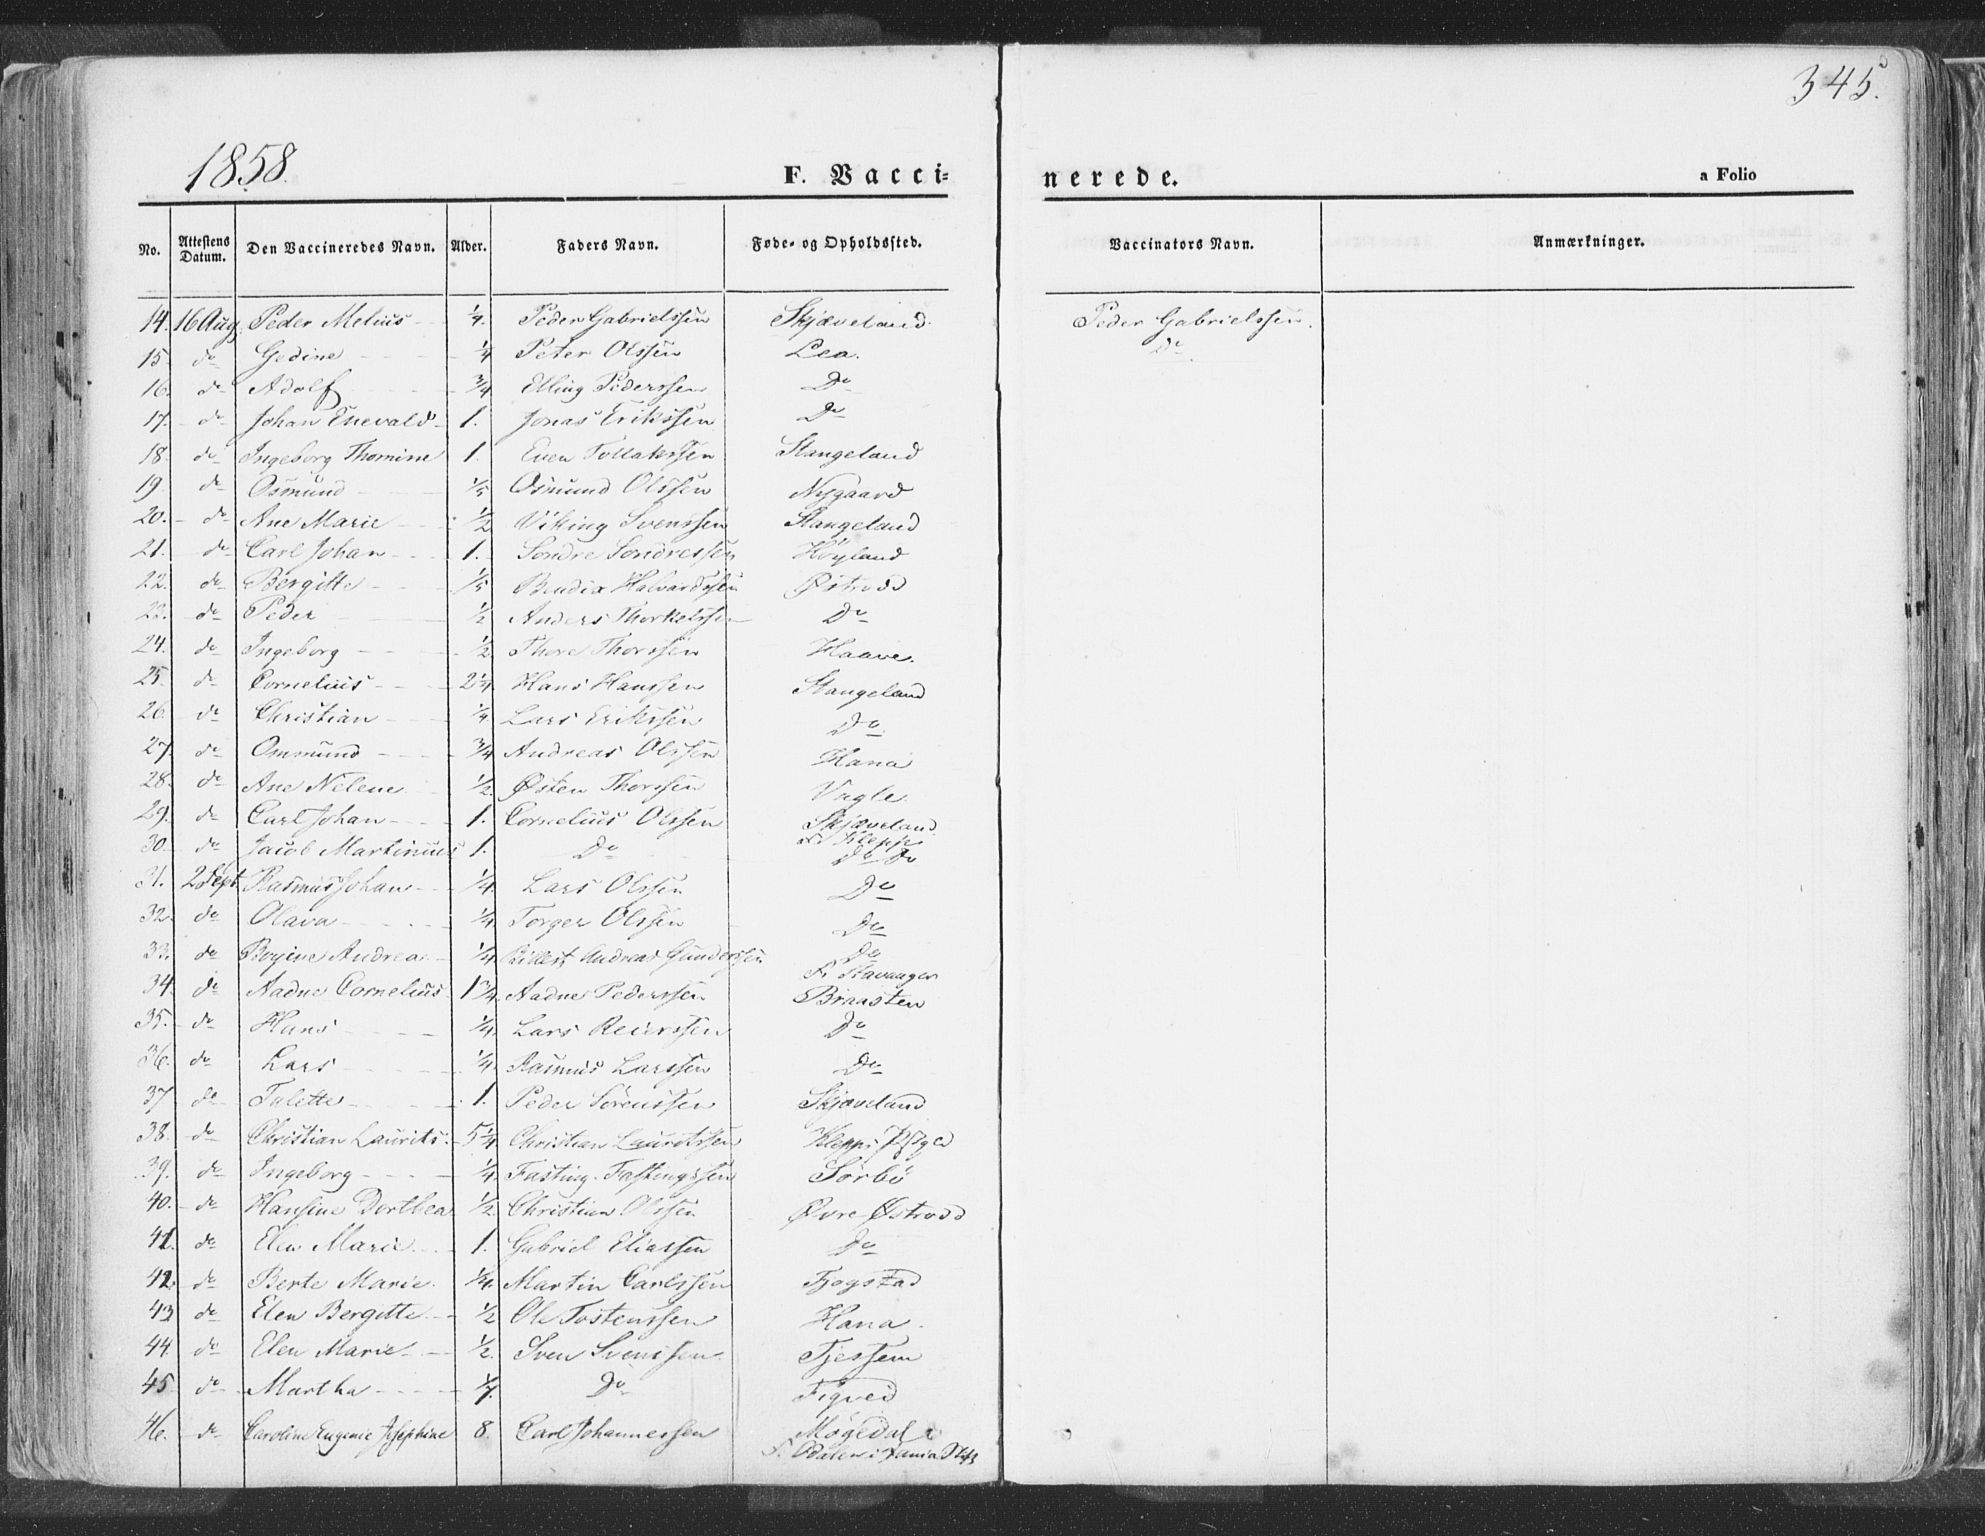 345.
1858.
F. Vacci-
nerede.
a Folio
No. Attestens Datum. Den Vaccineredes Navn. Alder. Faders Navn. Føde- og Opholdssted. Vaccinators Navn. Anmærkninger.
14. 16 Aug. Peder Melius 1/4. Peder Gabrielssen Skjæveland. Peder Gabrielssen.
15 do Gedine 1/4 Peter Olssen Lea. Do
16. do Adolf 3/4 Elling Pederssen Do
17. do Johan Enevald 1. Jonas Erikssen Do
18. do Ingeborg Thomine 1. Even Tollakssen Stangeland
19 do Osmund 1/5 Osmund Olssen Nygaard
20. do Ane Marie 1/2 Viking Svenssen Stangeland
21. do Carl Johan 1. Sondre Sondressen Høyland
22. do Bergitte 1/5 Bendix Halvardssen Østraad
23. do Peder 1/2 Anders Thorkelssen Do
24. do Ingeborg 1/2 Thore Thorssen Haave.
25. do Cornelius 2 1/4 Hans Hanssen Stangeland
26. do Christian 1/4. Lars Erikssen Do
27. do Ommund 3/4 Andreas Olssen Hana
28. do Ane Nelene 1/2 Østen Thorssen Vagle.
29. do Carl Johan 1. Cornelius Olssen Skjæveland
f. Klepp
30. do Jacob Martinius 1. Do Do Do
31. 2 Sept. Rasmus Johan 1/4. Lars Olssen Do
32. do Olava 1/4 Torger Olssen Do
33. do Andrea 1/4 Andreas Gunderssen Do
f. Stavanger
34 do Aadne Cornelius 1 3/4 Aadne Pederssen Braasten
35. do Hans 1/4. Lars Reierssen Do
36. do Lars 1/4 Rasmus Larssen Do
37 do Talette 1. Peder Sørenssen Skjæveland
38. do Christian Laurits 5 1/4 Christian Lauritssen Klepp
39. do Ingeborg 1/4 Fasting Fastingssen Sørbø
40. do Hansine Dorthea 1/2 Christian Olssen Øvre Østraad
41. do Elen Marie 1. Gabriel Eliassen Do
42. do Berte Marie 1/4. Martin Carlssen Fjogstad
43 do Elen Bergitte 1/2 Ole Tostenssen Hana.
44. do Elen Marie 1/2. Sven Svenssen Tjessem
45 do Martha 1/7. Do Figveid
46. do Caroline Eugenie Josephine 8. Carl Johannessen Møgedal